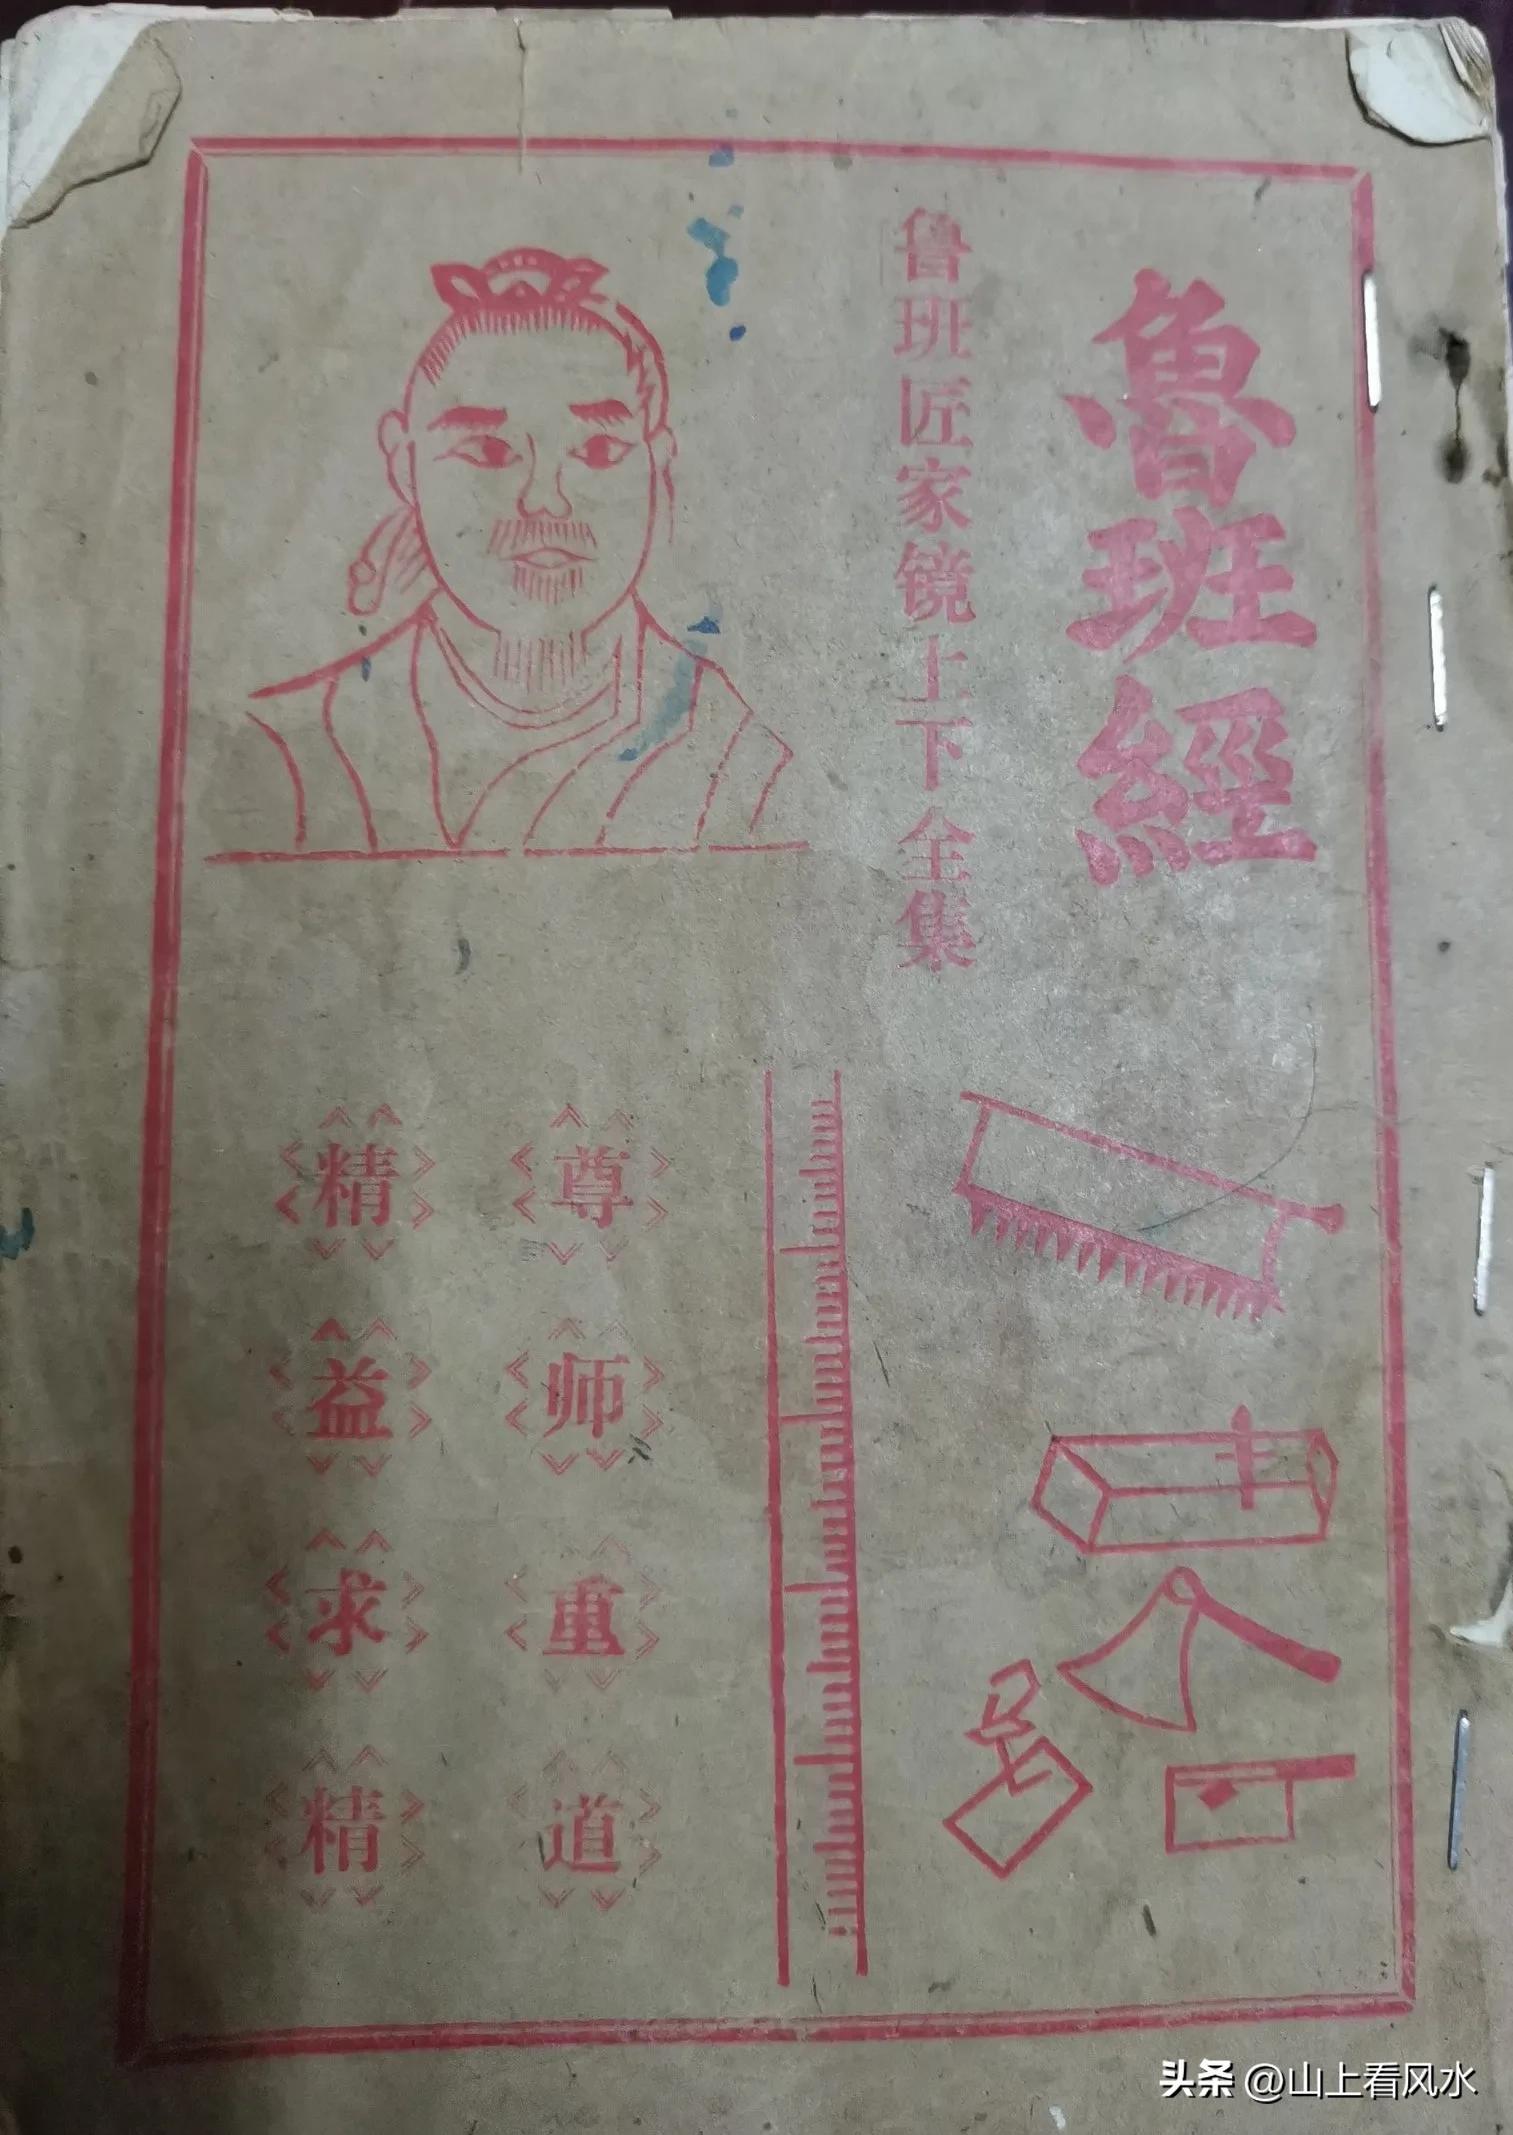 魯班經
鲁班匠家镜上下全集
尊师重道
精益求精
头条 @山上看风水